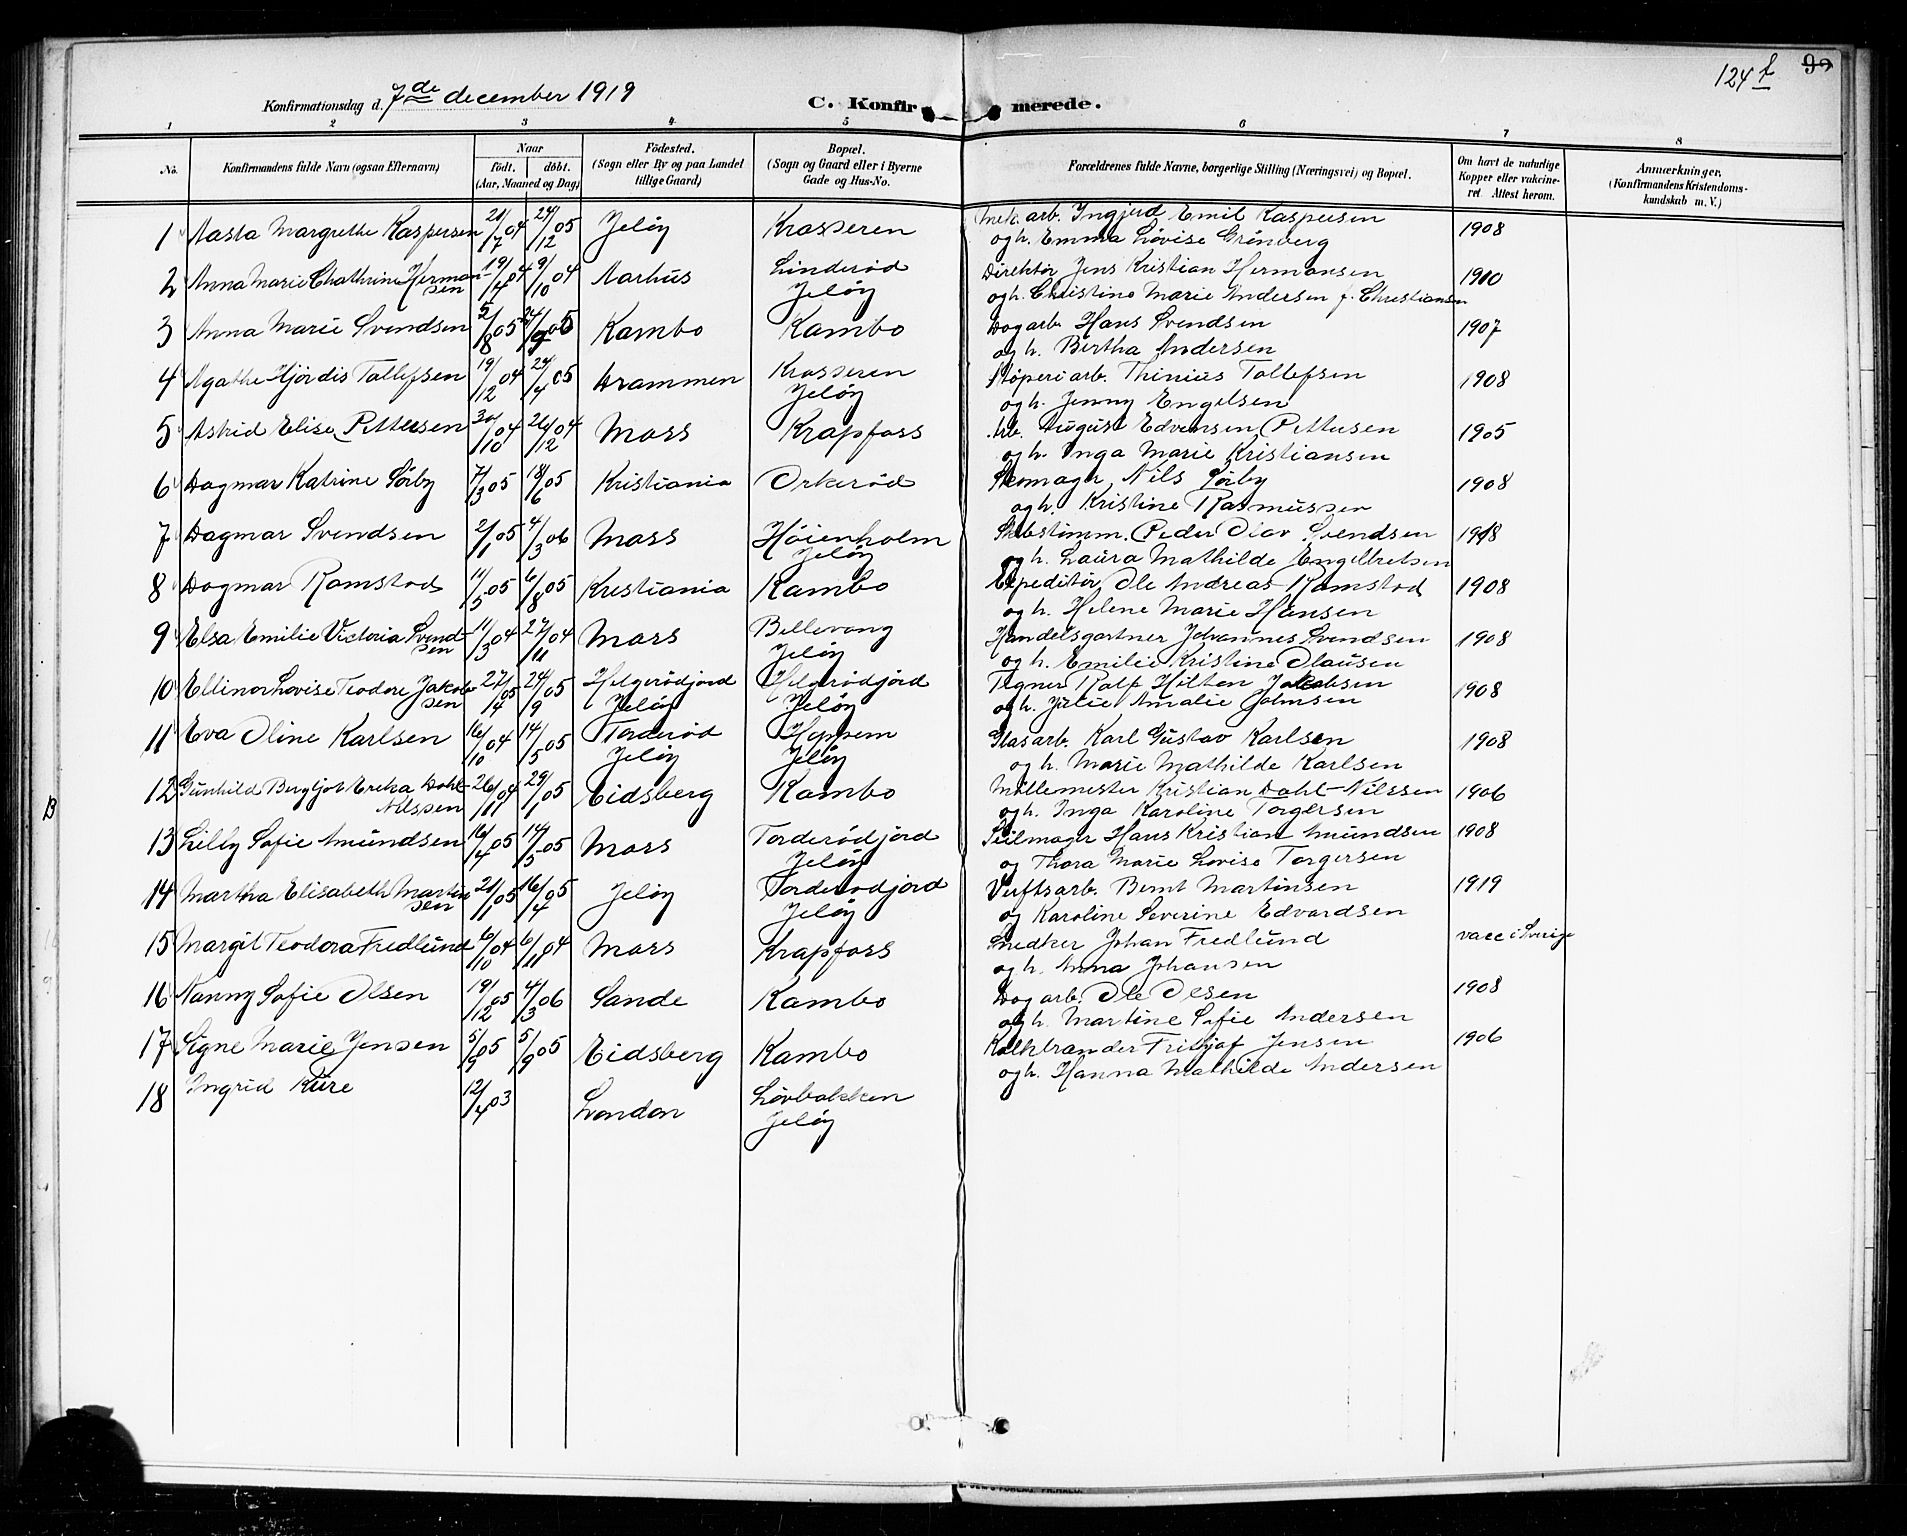 124 f 9
Konfirmationsdag d. 7de december 1919 C. Konfirmerede.
1 2 3 4 5 6 7 8
No. Konfirmandens fulde Navn (ogsaa Efternavn) Naar født. døbt. (Aar, Maaned og Dag) Fødested. (Sogn eller By og paa Landet tillige Gaard) Bopæl. (Sogn og Gaard eller i Byerne Gade og Hus-No. Forældrenes fulde Navne, borgerlige Stilling (Næringsvei) og Bopæl. Om havt de naturlige Kopper eller vakcineret. Attest herom. Anmærkninger. (Konfirmandens Kristendomskundskab m. V.)
1 Aasta Margrethe Kaspersen 21/7 04 24/12 05 Jeløy Krosseren Mek. arb. Ingjerd Emil Kaspersen 1908
og h. Emma Lovise Grønberg
2 Anna Marie Chathrine Hermansen 19/4 04 9/10 04 Aarhus Linderød Jeløy Direktør Jens Kristian Hermansen 1910
og h. Christine Marie Andersen f. Christiansen
3 Anna Marie Svendsen 5/8 05 Kambo Kambo Dagarb. Hans Svendsen 1907
og h. Bertha Andersen
4 Agathe Hjørdis Tollefsen 19/12 04 24/4 05 Drammen Krosseren Jeløy Støperiarb. Thinius Tollefsen 1908
og h. Jenny Engelsen
5 Astrid Elise Pettersen 30/10 04 26/12 04 Moss Krapfoss Arb. August Edvensen Pettersen 1905
og h. Inga Marie Kristiansen
6 Dagmar Katrine Sørby 7/3 05 18/6 05 Kristiania Orkerød Skomager Nils Sørby 1908
og h. Kristine Rasmussen
7 Dagmar Svendsen 2/1 05 4/3 06 Moss Høienholm Jeløy Skibstimm. Peder Olav Svendsen 1918
og h. Laura Mathilde Engelbretsen
8 Dagmar Ramstad 11/5 05 6/8 05 Kristiania Kambo Expeditør Ole Andreas Ramstad 1908
og h. Helene Marie Hansen
9 Elsa Emilie Victoria Svendsen 11/3 04 27/11 04 Moss Bellevang Jeløy Handelsgartner Johannes Svendsen 1908
og h. Emilie Kristine Olausen
10 Ellinor Lovise Teodore Jakobsen 27/4 05 24/9 05 Helgerødjord Jeløy Helgerødjord Jeløy Tegner Rolf Hilten Jakobsen 1908
og h. Julie Amalie Johnsen
11 Eva Oline Karlsen 16/10 04 14/5 05 Torderød Jeløy Jeløy Glasarb. Karl Gustav Karlsen 1908
og h. Marie Mathilde Karlsen
12 Gunhild Bergljot Erika Dahl-Nilssen 26/11 04 29/1 05 Eidsberg Kambo Møllemester Kristian Dahl-Nilssen 1906
og h. Inga Karoline Torgersen
13 Lilly Sofie Amundsen 16/4 05 14/5 05 Moss Torderødjord Jeløy Seilmager Hans Kristian Amundsen 1908
og Thora Marie Lovise Torgersen
14 Martha Elisabeth Martinsen 21/1 05 16/4 05 Jeløy Torderødjord Jeløy Verftsarb. Bernt Martinsen 1919
og Karoline Severine Edvardsen
15 Margit Teodora Fredlund 6/10 04 6/11 04 Moss Krapfoss Snedker Johan Fredlund vacc i Sverige
og h. Anna Johansen
16 Nanny Sofie Olsen 19/12 05 4/3 06 Sande Kambo Dagarb. Ole Olsen 1908
og h. Martine Sofie Andersen
17 Signe Marie Jensen 5/9 05 5/9 05 Eidsberg Kambo Kalkbrænder Fritjof Jensen 1906
og h. Hanna Mathilde Andersen
18 Ingrid Kure 12/4 03 London Løvbakken Jeløy